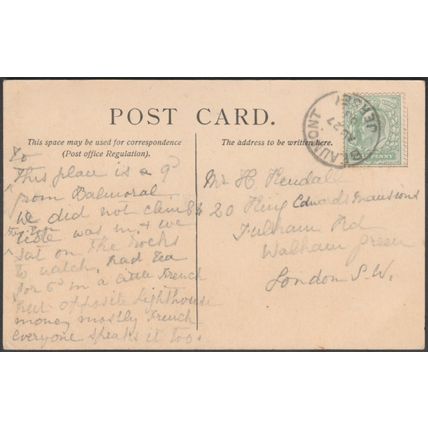 POST CARD.
This space may be used for correspondence
(Post office Regulation).
The address to be written here.
BEAUMONT
JERSEY
AU 27
PENNY
This place is a 9d
from Balmoral
We did not climb
was in & we
sat on the rocks
to watch, had tea
for 6d in a little French
opposite lighthouse
money mostly French
everyone speaks it too.
Mr H. Kendall
20 King Edwards Mansions
Fulham Rd
Walham Green
London S.W.